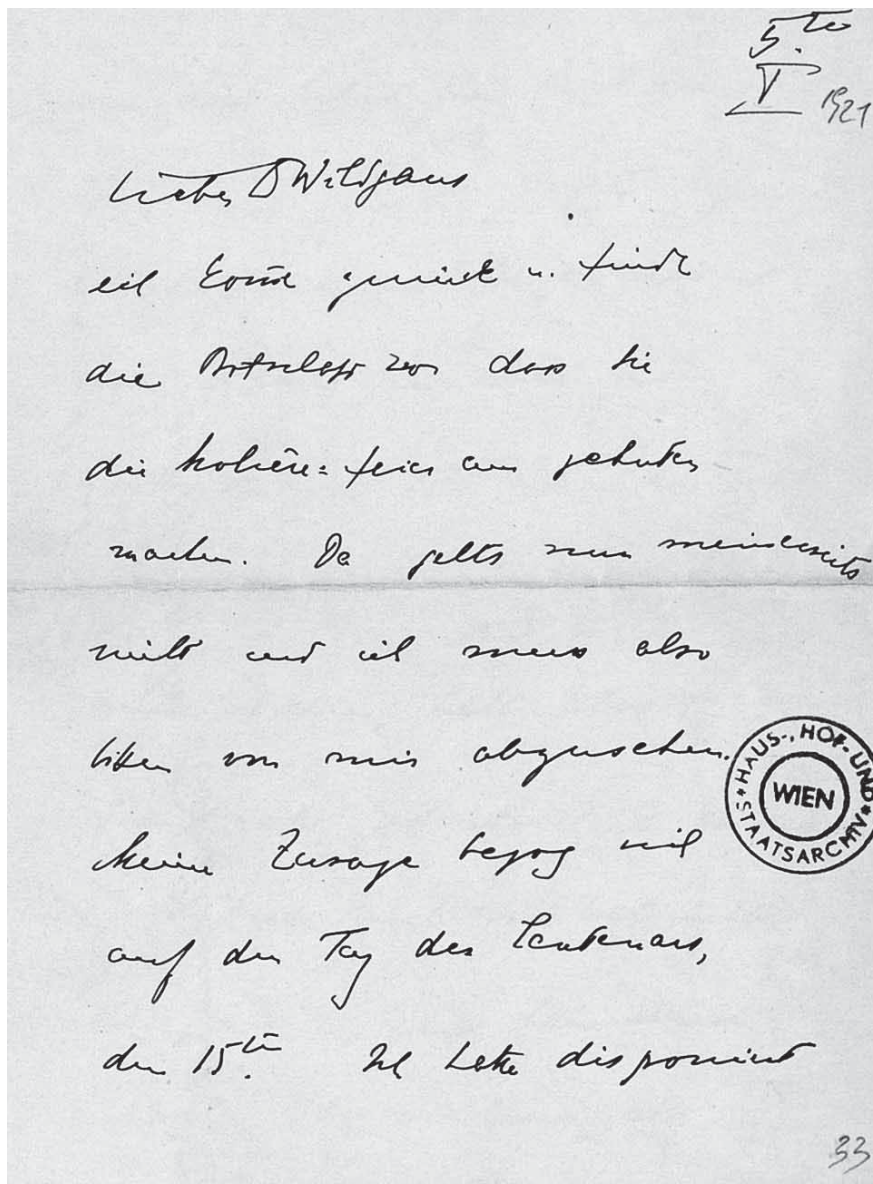 5.te
I 1921
Lieber D Wildgans
ich komme zurück u. finde
die Botschaft vor dass Sie
die Molière=feier am zehnten
machen. Da gehts nun meinerseits
nicht und ich muss also
bitten von mir abzusehen.
Meine Zusage bezog sich
auf den Tag des Centenars,
den 15ten. Ich hatte disponiert
HAUS-, HOF- UND STAATSARCHIV
WIEN
33